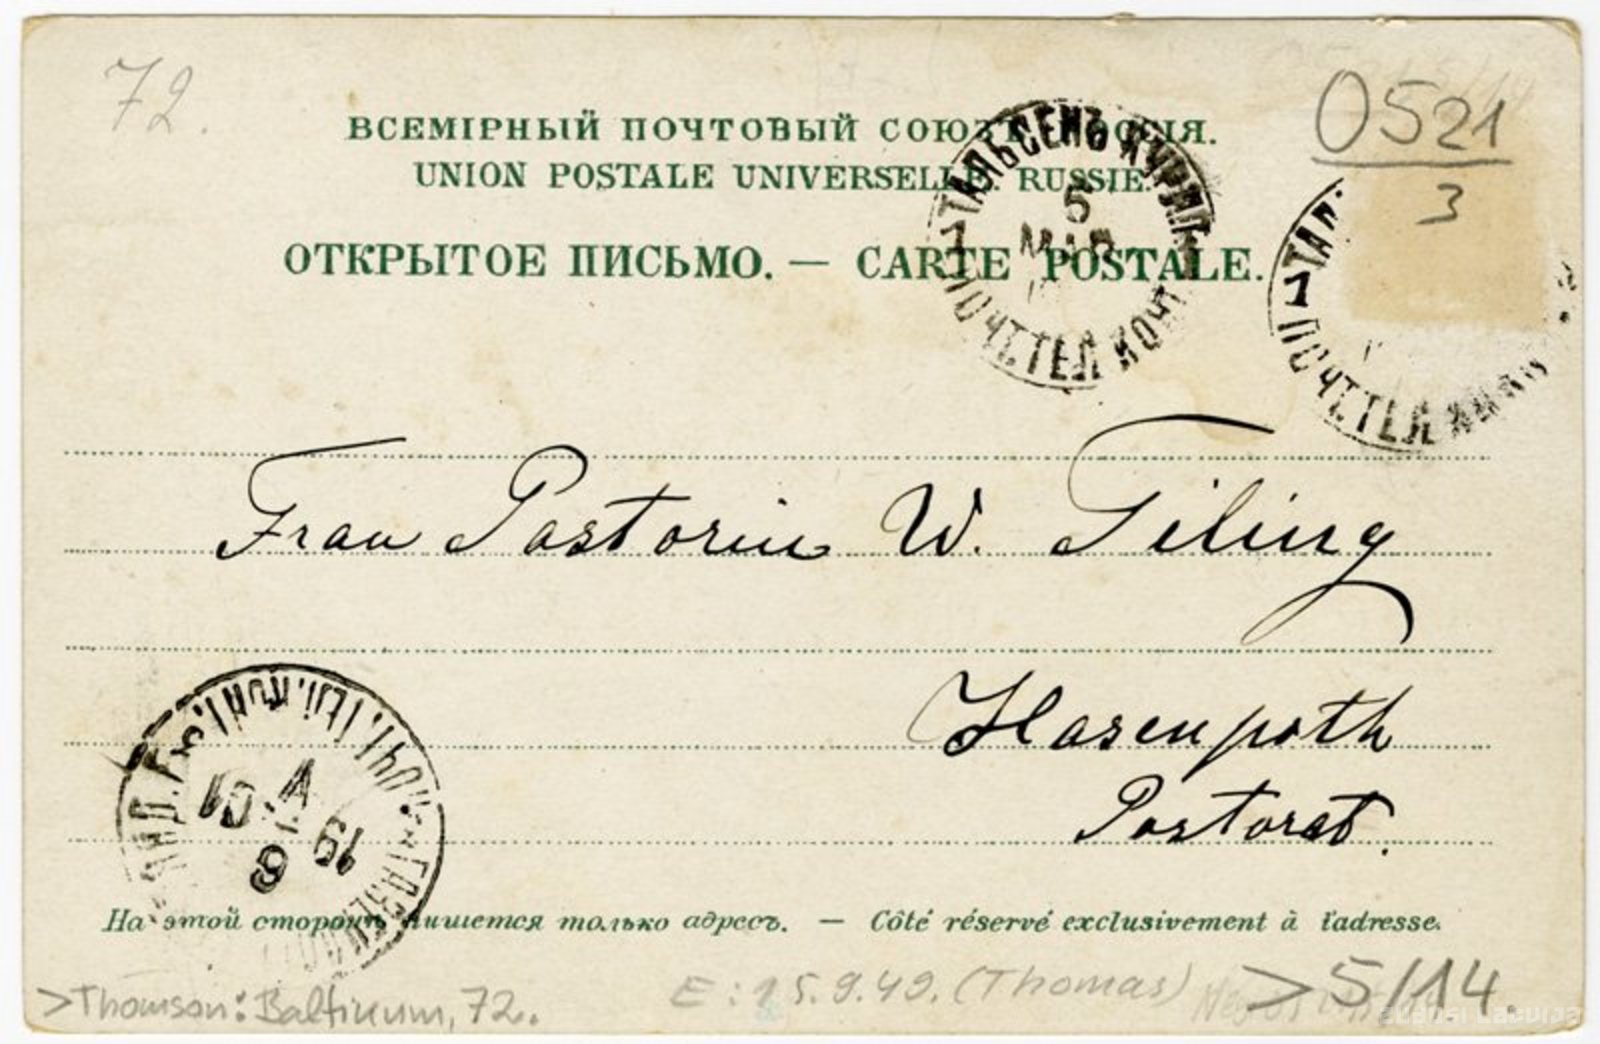 72.
0521
3
ВСЕМІРНЫЙ ПОЧТОВЫЙ СОЮЗЪ РОССІЯ.
UNION POSTALE UNIVERSELLE. RUSSIE.
ОТКРЫТОЕ ПИСЬМО. — CARTE POSTALE.
ТАЛЬСЕНЪ КУРЛ.
5
МАР
1
ПОЧТ. ТЕЛ. КОНТ
ТАЛ
1
ПОЧТ. ТЕЛ.
Frau Pastorin W. Tiling
Hasenpoth
Pastorat.
ПОЧТ. ТЕЛ. КОНТ.
19 V 01
8
На этой сторонѣ пишется только адресъ. — Côté réservé exclusivement à l'adresse.
>Thomson: Baltikum, 72.
E: 15.9.49. (Thomas)
>5/14.